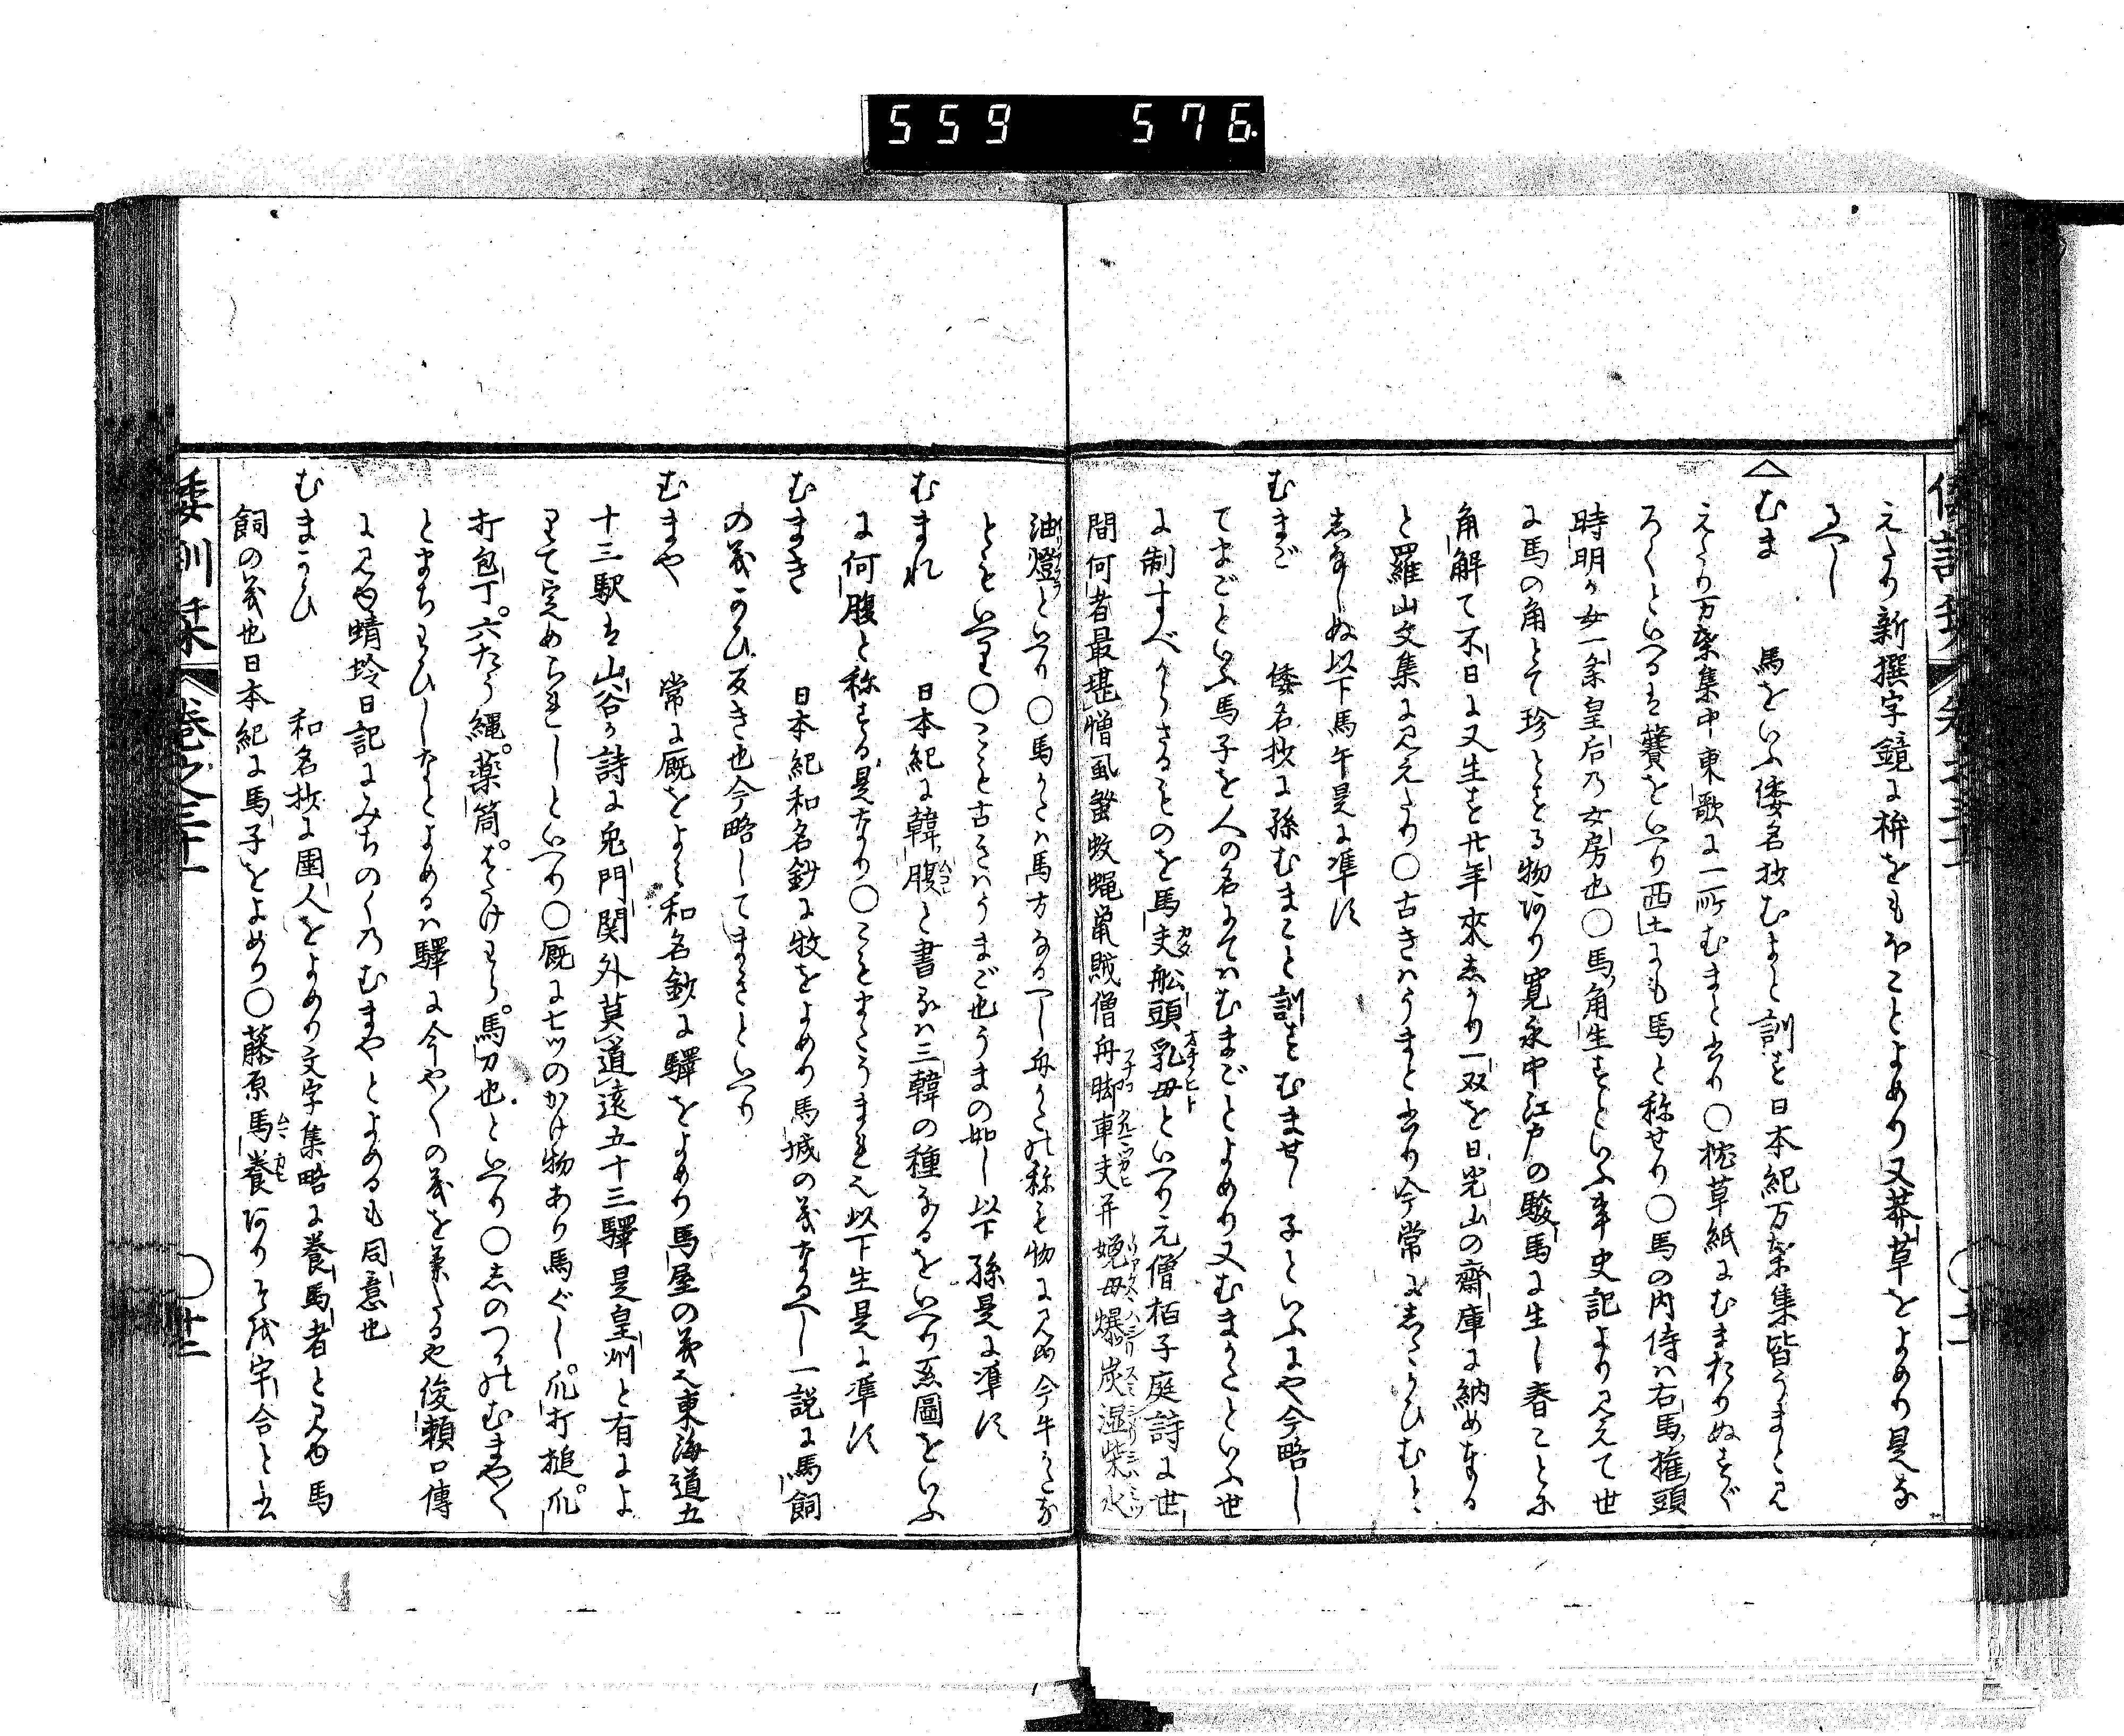 559 576
えたり新撰字鏡に榊をもほことよめり又莽草をよめり是な
るへし
△むま 馬をいふ倭名抄むまと訓せり日本紀万葉集皆うまと見
えたり万葉集中東歌に一所むまとあり○枕草紙にむまれりぬすぐ
ろくといへるは簺をいへり西土にも馬と称せり○馬の内侍は右馬権頭
時明か女一条皇后の女房也○馬角生すといふ事史記より見えて世
に馬の角とて珍とする物あり寛永中江戸の駿馬に生し春ことに
角解て不日に又生す廿年来しかり一双を日光山の斎庫に納め奉る
と羅山文集に見えたり○古きはうまとあり今常にしたかひむと
しるしぬ以下馬午是に準す
むまご 倭名抄に孫むまこと訓すむませし子といふにや今略し
てまごといふ馬子を人の名にてはむまごとよめり又むまかたといふ世
に制すべからさるものを馬夫舩頭乳母といへり元僧栢子庭詩に世
間何者最堪憎虱蟹蚊蝿鼠賊僧舟脚車夫并娩母爆炭湿柴水
油燈といへり○馬かたは馬方なるへし舟かたの称も物に見ゆ今牛かたな
ともいへり○こゝも古きはうまご也うまの如し以下孫是に準す
むまれ 日本紀に韓腹と書るは三韓の種なるをいへり系図をいふ
に何腹と称する是なり○こゝもまたうまれ也以下生是に準す
むまき 日本紀和名鈔に牧をよめり馬城の義なるへし一説に馬飼
の義かひ反き也今略してまきといへり
むまや 常に厩をよみ和名鈔に驛をよめり馬屋の義也東海道五
十三駅は山谷か詩に鬼門関外莫道遠五十三驛是皇州と有によ
りて定められしといへり○厩に七ツのかけ物あり馬ぐし。爪打槌。爪
打包丁。六たう縄。薬筒。はたけわら。馬刀也といへり○しのつかのむまや〱
とまちわひしなとよめるは驛に今や〱の義を兼たるや俊頼口傳
に見ゆ蜻蛉日記にみちのくのむまやとよめるも同意也
むまかひ 和名抄に圉人をよめり文字集略に養馬者と見ゆ馬
飼の義也日本紀に馬子をよめり○藤原馬養ありそを或宇合と書
倭訓栞 巻之三十一 ○廿二